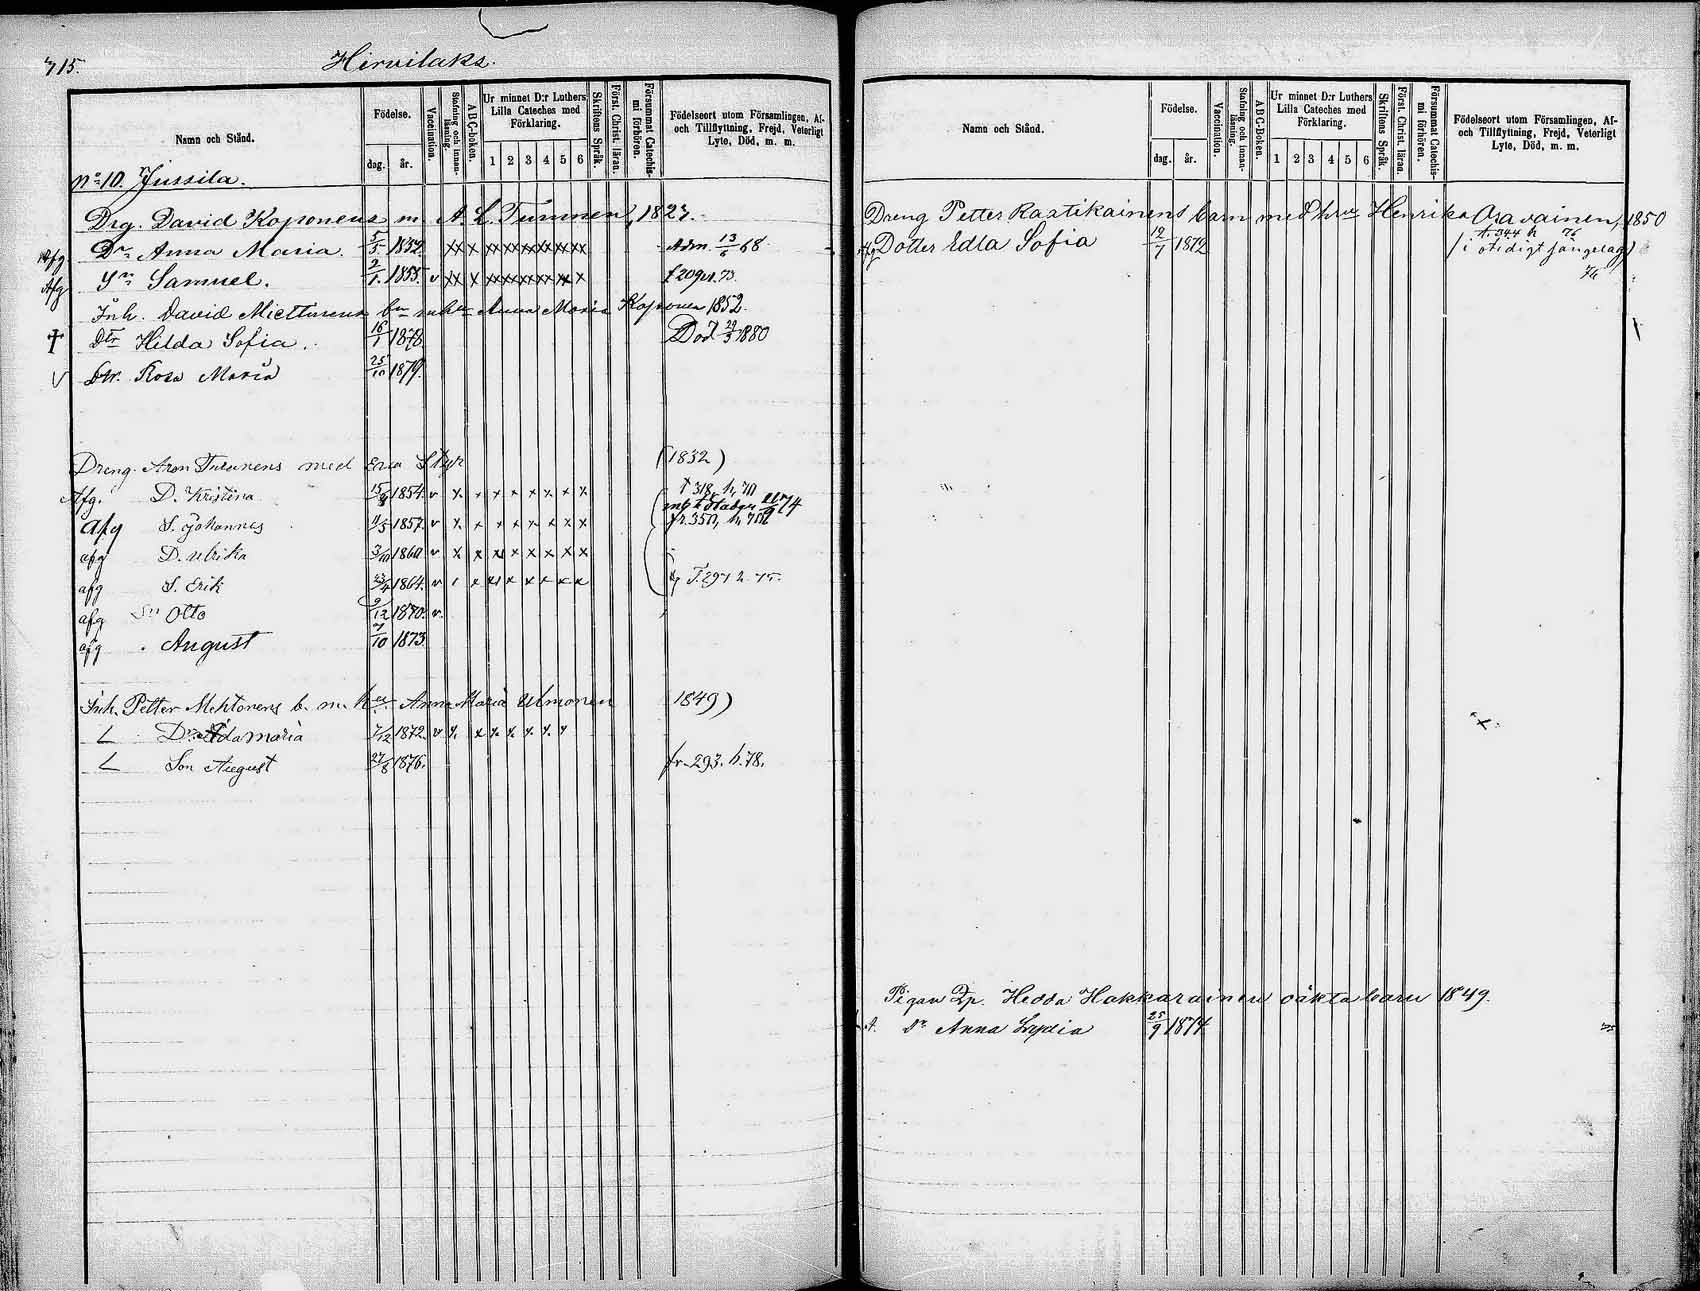 715.
Hirvilaks.
Namn och Stånd.
Födelse.
dag. år.
Vaccination.
Stafning och innan-läsning.
ABC-boken.
Ur minnet D:r Luthers Lilla Cateches med Förklaring.
1 2 3 4 5 6
Skriftens Språk.
Först. Christ. läran.
Försummat Catechismi förhören.
Födelseort utom Församlingen, Af- och Tillflyttning, Frejd, Veterligt Lyte, Död, m. m.
No 10. Jussila.
Drg. David Koponens m. A. L. 1823.
Afg Dr Anna Maria. 5/5 1852 Adm. 13/6 68
Afg Sn Samuel. 2/1 1855 v f 209 73.
Inh. David Miettinens bn Anna Maria Koponen 1852.
† Dtr Hilda Sofia. 16/1 1878 Död 29/3 1880
v Dtr. Rosa Maria 25/10 1879.
Dreng. Aron Turunens med Eva (1832)
Afg. D. Kristina 1854. v x x x x x x x x
afg S. Johannes 11/5 1857. v x x x x x x x x fr. 350,
afg D. Ulrika 3/10 1860 v x x x x x x x x
afg S. Erik 23/4 1864. v
afg Sn Otto 9/12 1870. v.
afg August 7/10 1873.
Inh. Petter Mehtonens b. m. h Anna Maria Ulmonen 1849)
L Dr. Ada Maria 7/12 1872. v x x x x x x
L Son August 27/8 1876. fr. 293. h. 78.
Namn och Stånd.
Födelse.
dag. år.
Vaccination.
Stafning och innan-läsning.
ABC-Boken.
Ur minnet D:r Luthers Lilla Cateches med Förklaring.
1 2 3 4 5 6
Skriftens Språk.
Först. Christ. läran.
Försummat Catechismi förhören.
Födelseort utom Församlingen, Af- och Tillflyttning, Frejd, Veterligt Lyte, Död, m. m.
Dreng Petter Raatikainens barn med hru Henrika Aravainen, 1850
Afg Dotter Edla Sofia 12/7 1872 344 h 76
Pigan Hedda Hakkarainen oäkta barn 1849.
A. Dr Anna Lydia 25/9 1874 75